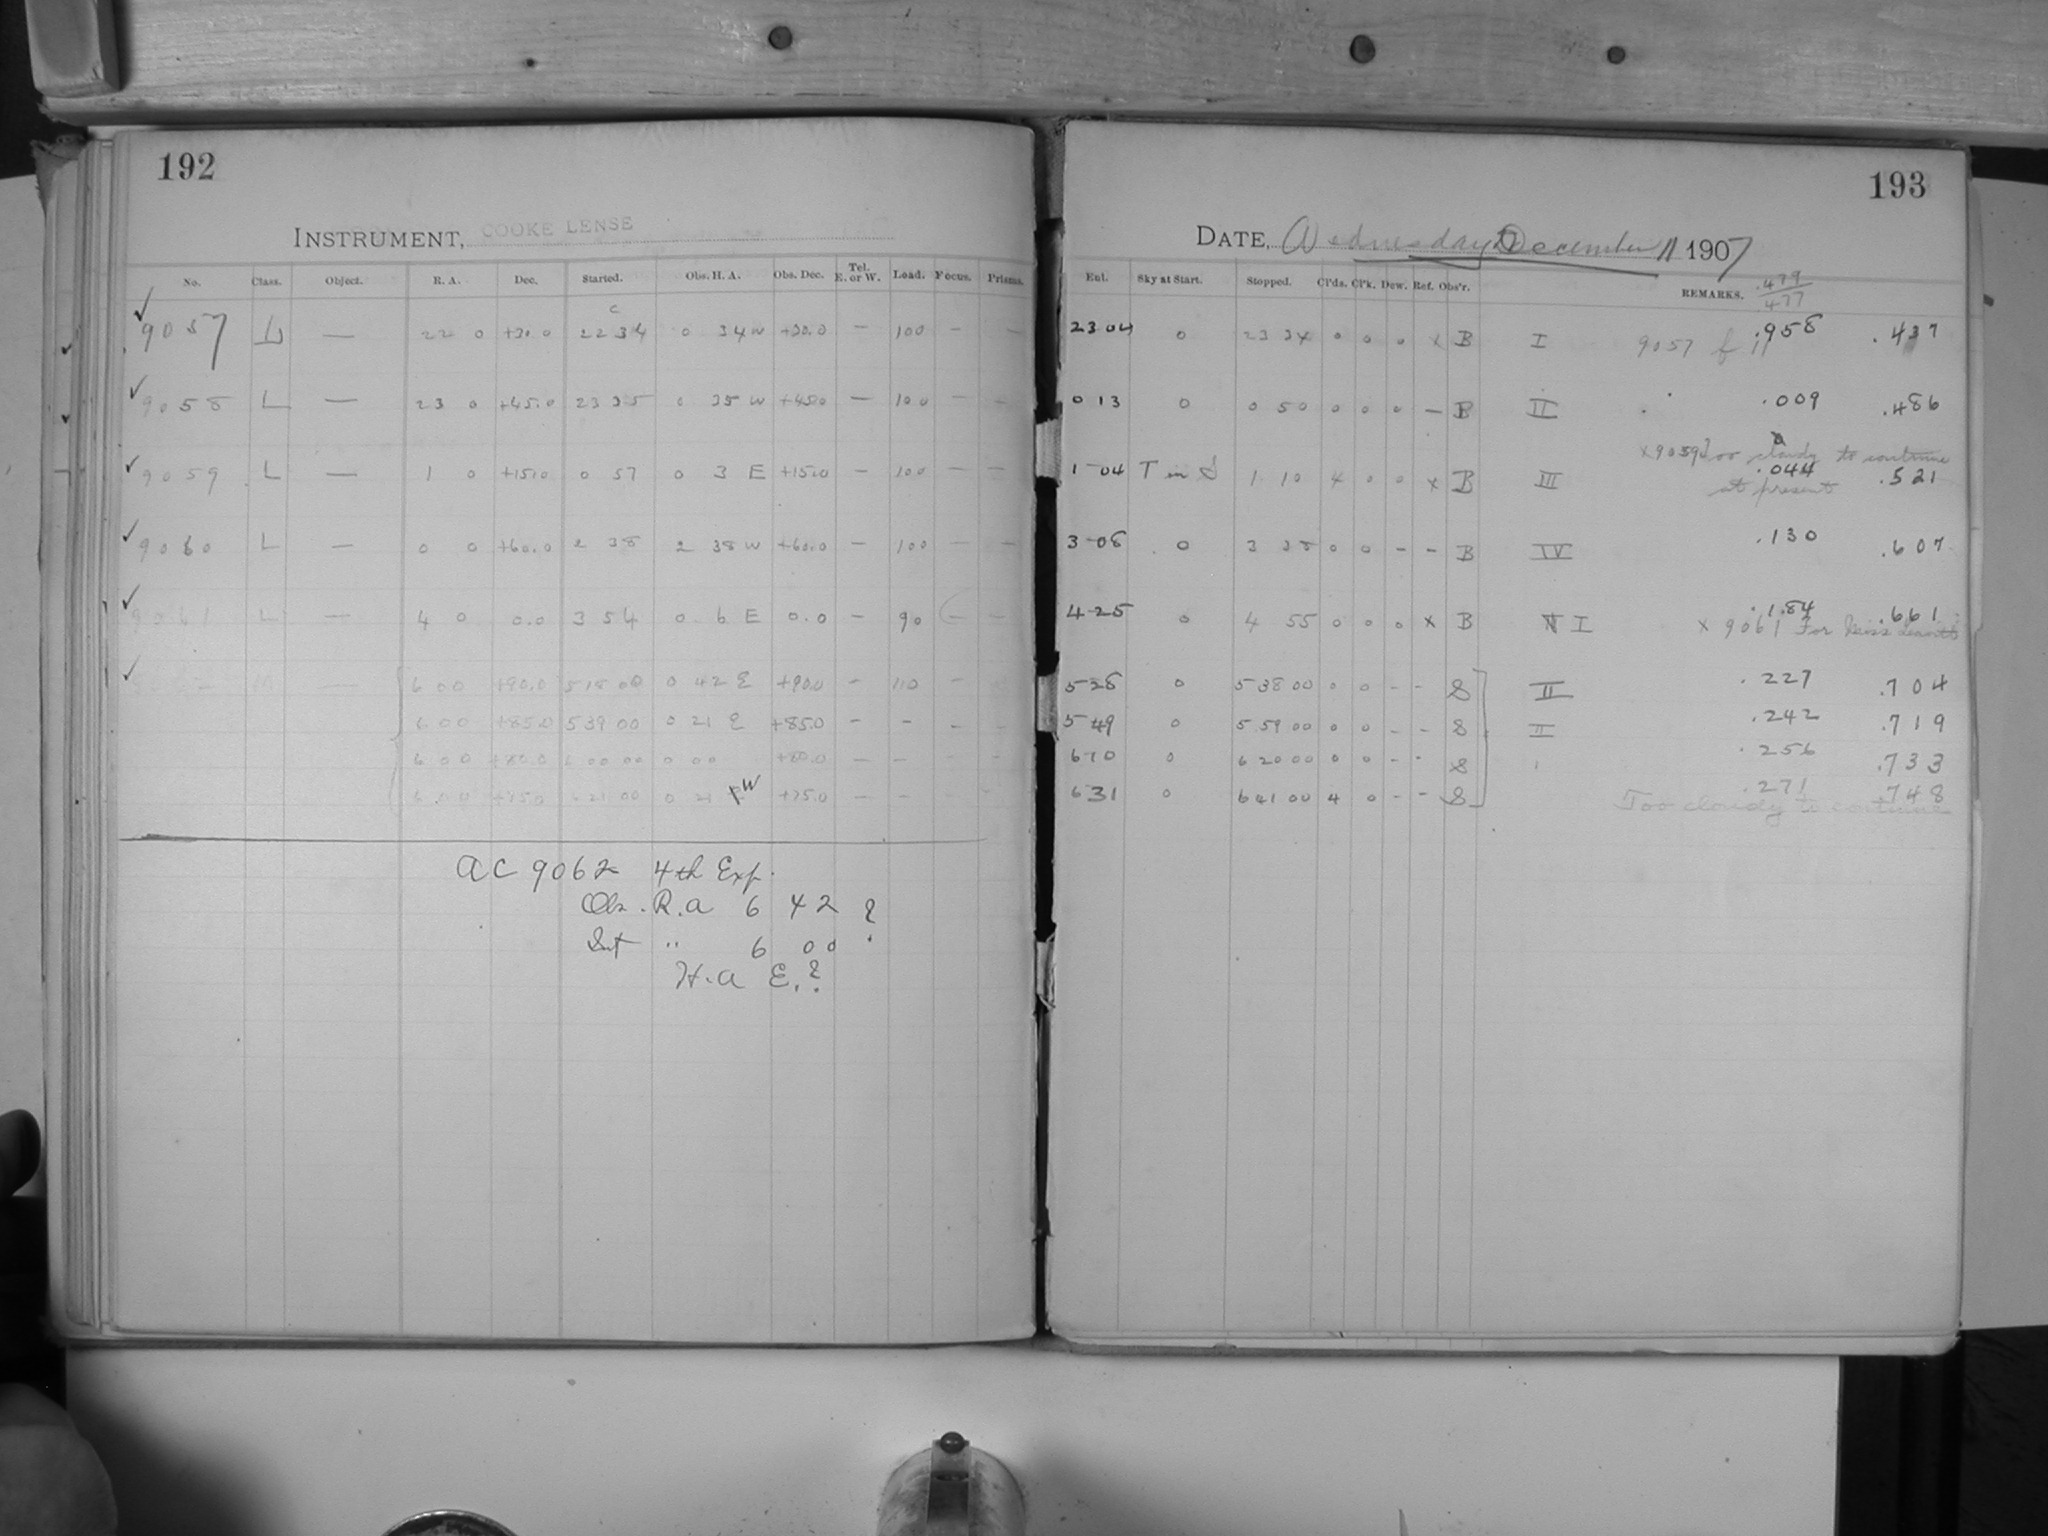 192
INSTRUMENT, COOKE LENSE
No. Class. Object. R. A. Dec. Started. Obs. H. A. Obs. Dec. Tel. E. or W. Load. Focus. Prisms.
C
✓ 9057 L — 22 0 +30.0 22 34 0 34 W +30.0 — 100 — —
✓ 9058 L — 23 0 +45.0 23 35 0 35 W +45.0 — 100 — —
✓ 9059 L — 1 0 +15.0 0 57 0 3 E +15.0 — 100 — —
✓ 9060 L — 0 0 +60.0 2 38 2 38 W +60.0 — 100 — —
✓ 9061 L — 4 0 0.0 3 54 0 6 E 0.0 — 90 — —
✓ — 6 00 +90.0 5 18 00 0 42 E +90.0 — 110 —
6 00 +85.0 5 39 00 0 21 E +85.0 — — — —
6 00 +80.0 6 00 00 0 00 +80.0 — — — —
6 00 +75.0 6 21 00 0 21 W +75.0 — — —
AC 9062 4th Exp.
Obs. R.a 6 42 ?
Set " 6 00 .
H.a E. ?
193
DATE, Wednesday December 11 1907
Ent. Sky at Start. Stopped. Cl'ds. Cl'k. Dew. Ref. Obs'r. REMARKS. .479
477
23 04 0 23 34 0 0 0 x B I 9057 .958 .437
0 13 0 0 50 0 0 0 — B II .009 .486
x 9059 Too cloudy to continue
1-04 T in 1 10 4 0 0 x B III .044 .521
at present
3-08 0 3 38 0 0 - - B IV .130 .607
4-25 0 4 55 0 0 0 x B I .184 .661
x 9061 For Miss Leavitt
5-28 0 5 38 00 0 0 - - S II .227 .704
5 49 0 5 59 00 0 0 - - S II .242 .719
6 10 0 6 20 00 0 0 - - S .256 .733
6 31 0 6 41 00 4 0 - - S .271 .748
Too cloudy to continue